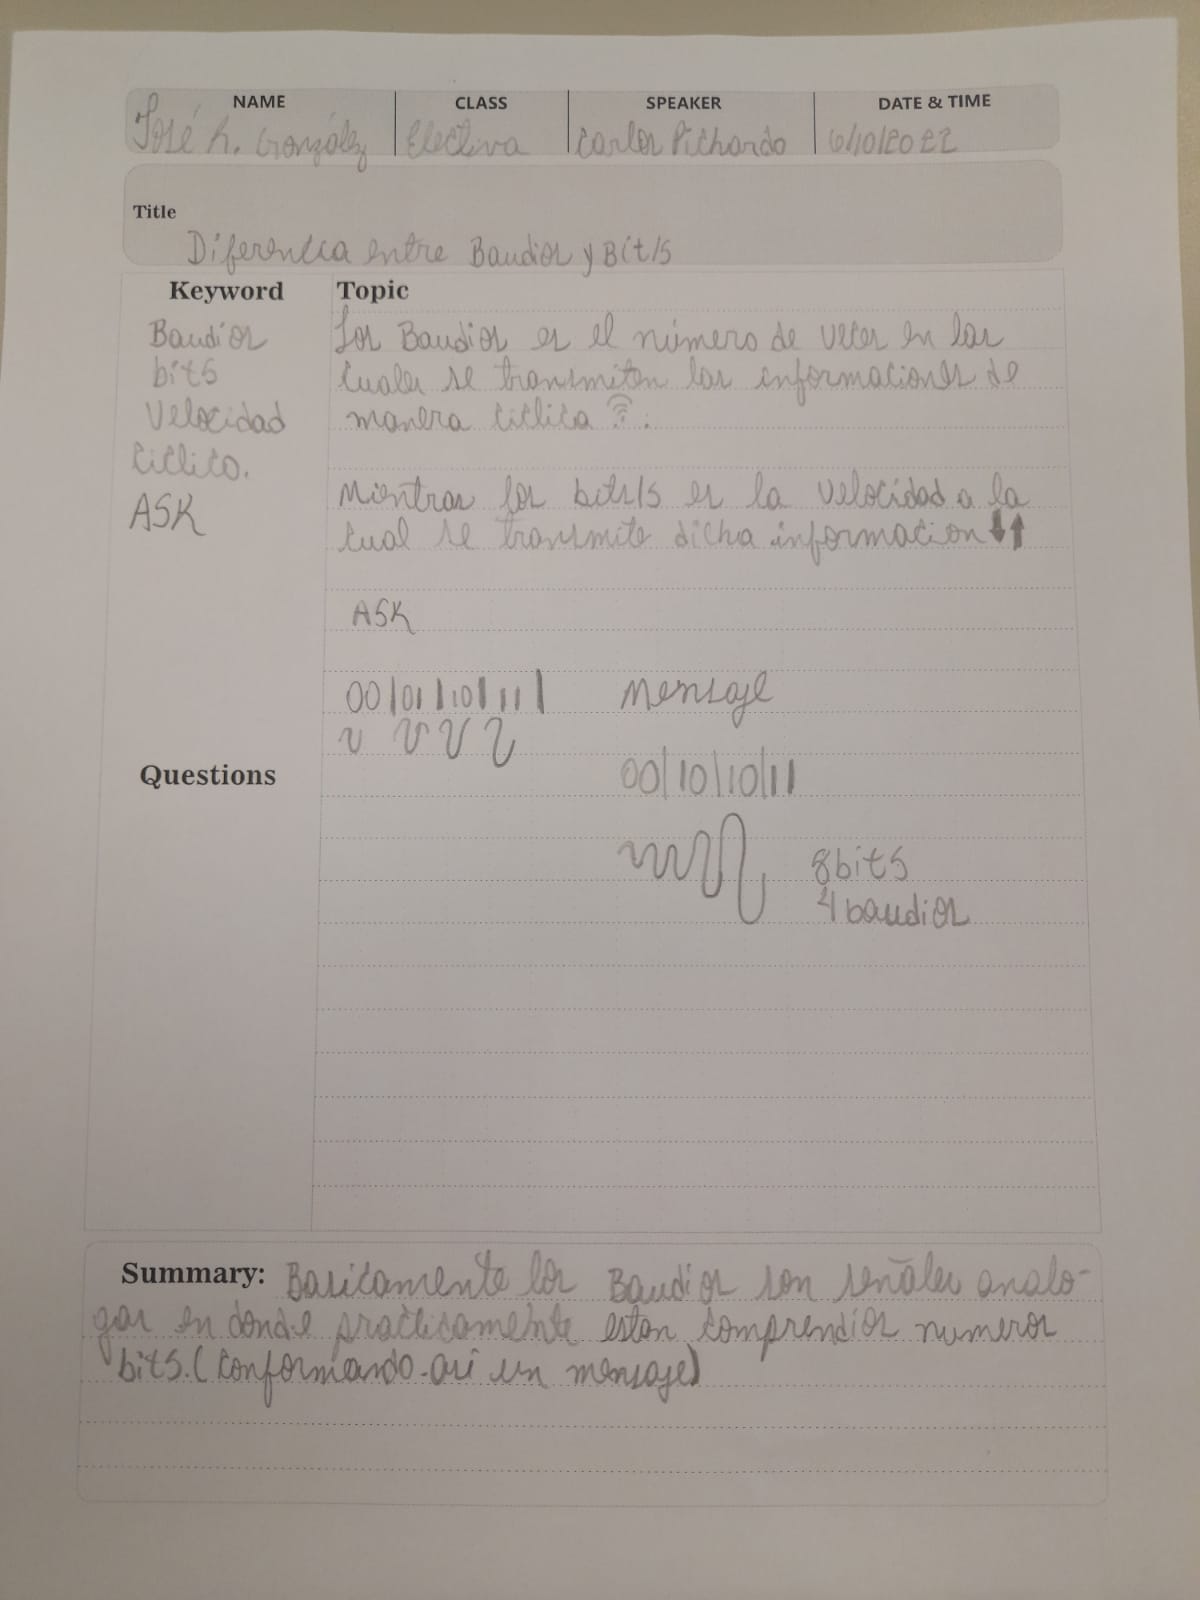 NAME CLASS SPEAKER DATE & TIME
José h. González Electiva Carlos Pichardo 6/10/2022
Title
Diferencia entre Baudios y Bit/s
Keyword Topic
Baudios
bits
Velocidad
Ciclico.
ASK
Los Baudios es el número de veces en las
cuales se transmiten las informaciones de
manera ciclica .
Mientras los bits/s es la velocidad a la
cual se transmite dicha informacion ↓↑
ASK
00|01|10|11| Mensaje
00|10|10|11
Questions
8bits
4 baudios
Summary: Basicamente los Baudios son señales analo-
gas en donde practicamente estan comprendios numeros
bits. (Conformando asi un mensaje)